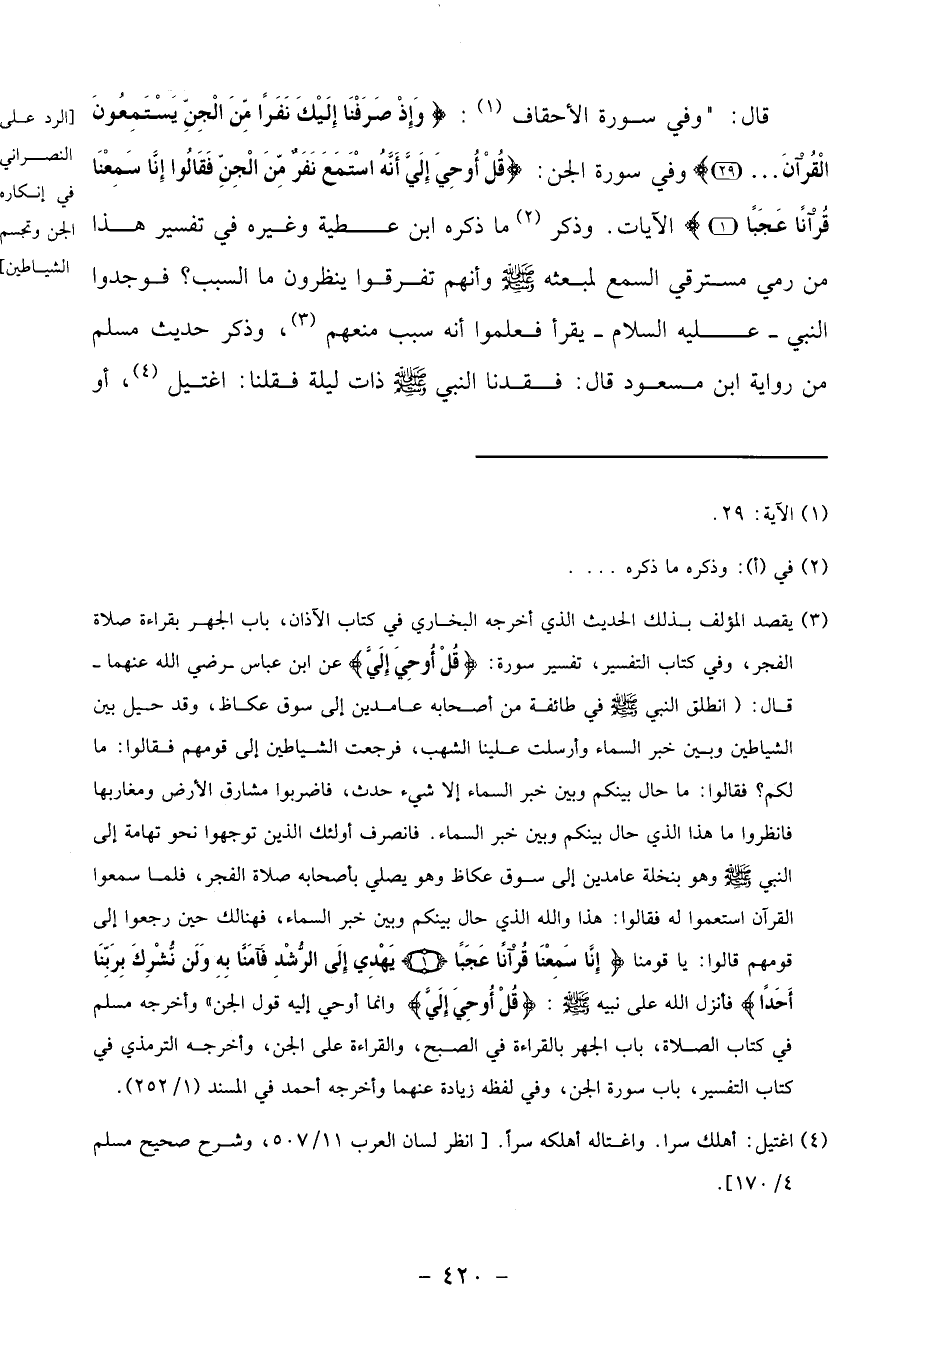 قال: "وفي سورة الأحقاف (١) : ﴿ وَإِذْ صَرَفْنَا إِلَيْكَ نَفَرًا مِّنَ الْجِنِّ يَسْتَمِعُونَ
الْقُرْآنَ... (٢٩)﴾ وفي سورة الجن: ﴿قُلْ أُوحِيَ إِلَيَّ أَنَّهُ اسْتَمَعَ نَفَرٌ مِّنَ الْجِنِّ فَقَالُوا إِنَّا سَمِعْنَا
قُرْآنًا عَجَبًا (١) ﴾ الآيات. وذكر (٢) ما ذكره ابن عطية وغيره في تفسير هذا
من رمي مسترقي السمع لمبعثه ﷺ وأنهم تفرقوا ينظرون ما السبب؟ فوجدوا
النبي ـ عليه السلام ـ يقرأ فعلموا أنه سبب منعهم (٣)، وذكر حديث مسلم
من رواية ابن مسعود قال: فقدنا النبي ﷺ ذات ليلة فقلنا: اغتيل (٤)، أو
[الرد على
النصراني
في إنكاره
الجن وتجسم
الشياطين]
(١) الآية: ٢٩.
(٢) في (أ): وذكره ما ذكره . . . .
(٣) يقصد المؤلف بذلك الحديث الذي أخرجه البخاري في كتاب الآذان، باب الجهر بقراءة صلاة
الفجر، وفي كتاب التفسير، تفسير سورة: ﴿ قُلْ أُوحِيَ إِلَيَّ﴾ عن ابن عباس ـرضي الله عنهما ـ
قال: ( انطلق النبي ﷺ في طائفة من أصحابه عامدين إلى سوق عكاظ، وقد حيل بين
الشياطين وبين خبر السماء وأرسلت علينا الشهب، فرجعت الشياطين إلى قومهم فقالوا: ما
لكم؟ فقالوا: ما حال بينكم وبين خبر السماء إلا شيء حدث، فاضربوا مشارق الأرض ومغاربها
فانظروا ما هذا الذي حال بينكم وبين خبر السماء. فانصرف أولئك الذين توجهوا نحو تهامة إلى
النبي ﷺ وهو بنخلة عامدين إلى سوق عكاظ وهو يصلي بأصحابه صلاة الفجر، فلما سمعوا
القرآن استعموا له فقالوا: هذا والله الذي حال بينكم وبين خبر السماء، فهنالك حين رجعوا إلى
قومهم قالوا: يا قومنا ﴿ إِنَّا سَمِعْنَا قُرْآنًا عَجَبًا ﴿١﴾ يَهْدِي إِلَى الرُّشْدِ فَآمَنَّا بِهِ وَلَن نُّشْرِكَ بِرَبِّنَا
أَحَدًا﴾ فأنزل الله على نبيه ﷺ : ﴿قُلْ أُوحِيَ إِلَيَّ﴾ وانما أوحي إليه قول الجن" وأخرجه مسلم
في كتاب الصلاة، باب الجهر بالقراءة في الصبح، والقراءة على الجن، وأخرجه الترمذي في
كتاب التفسير، باب سورة الجن، وفي لفظه زيادة عنهما وأخرجه أحمد في المسند (١/ ٢٥٢).
(٤) اغتيل: أهلك سرا. واغتاله أهلكه سرأ. [ انظر لسان العرب ١١/ ٥٠٧، وشرح صحيح مسلم
٤/ ١٧٠].
- ٤٢٠ -